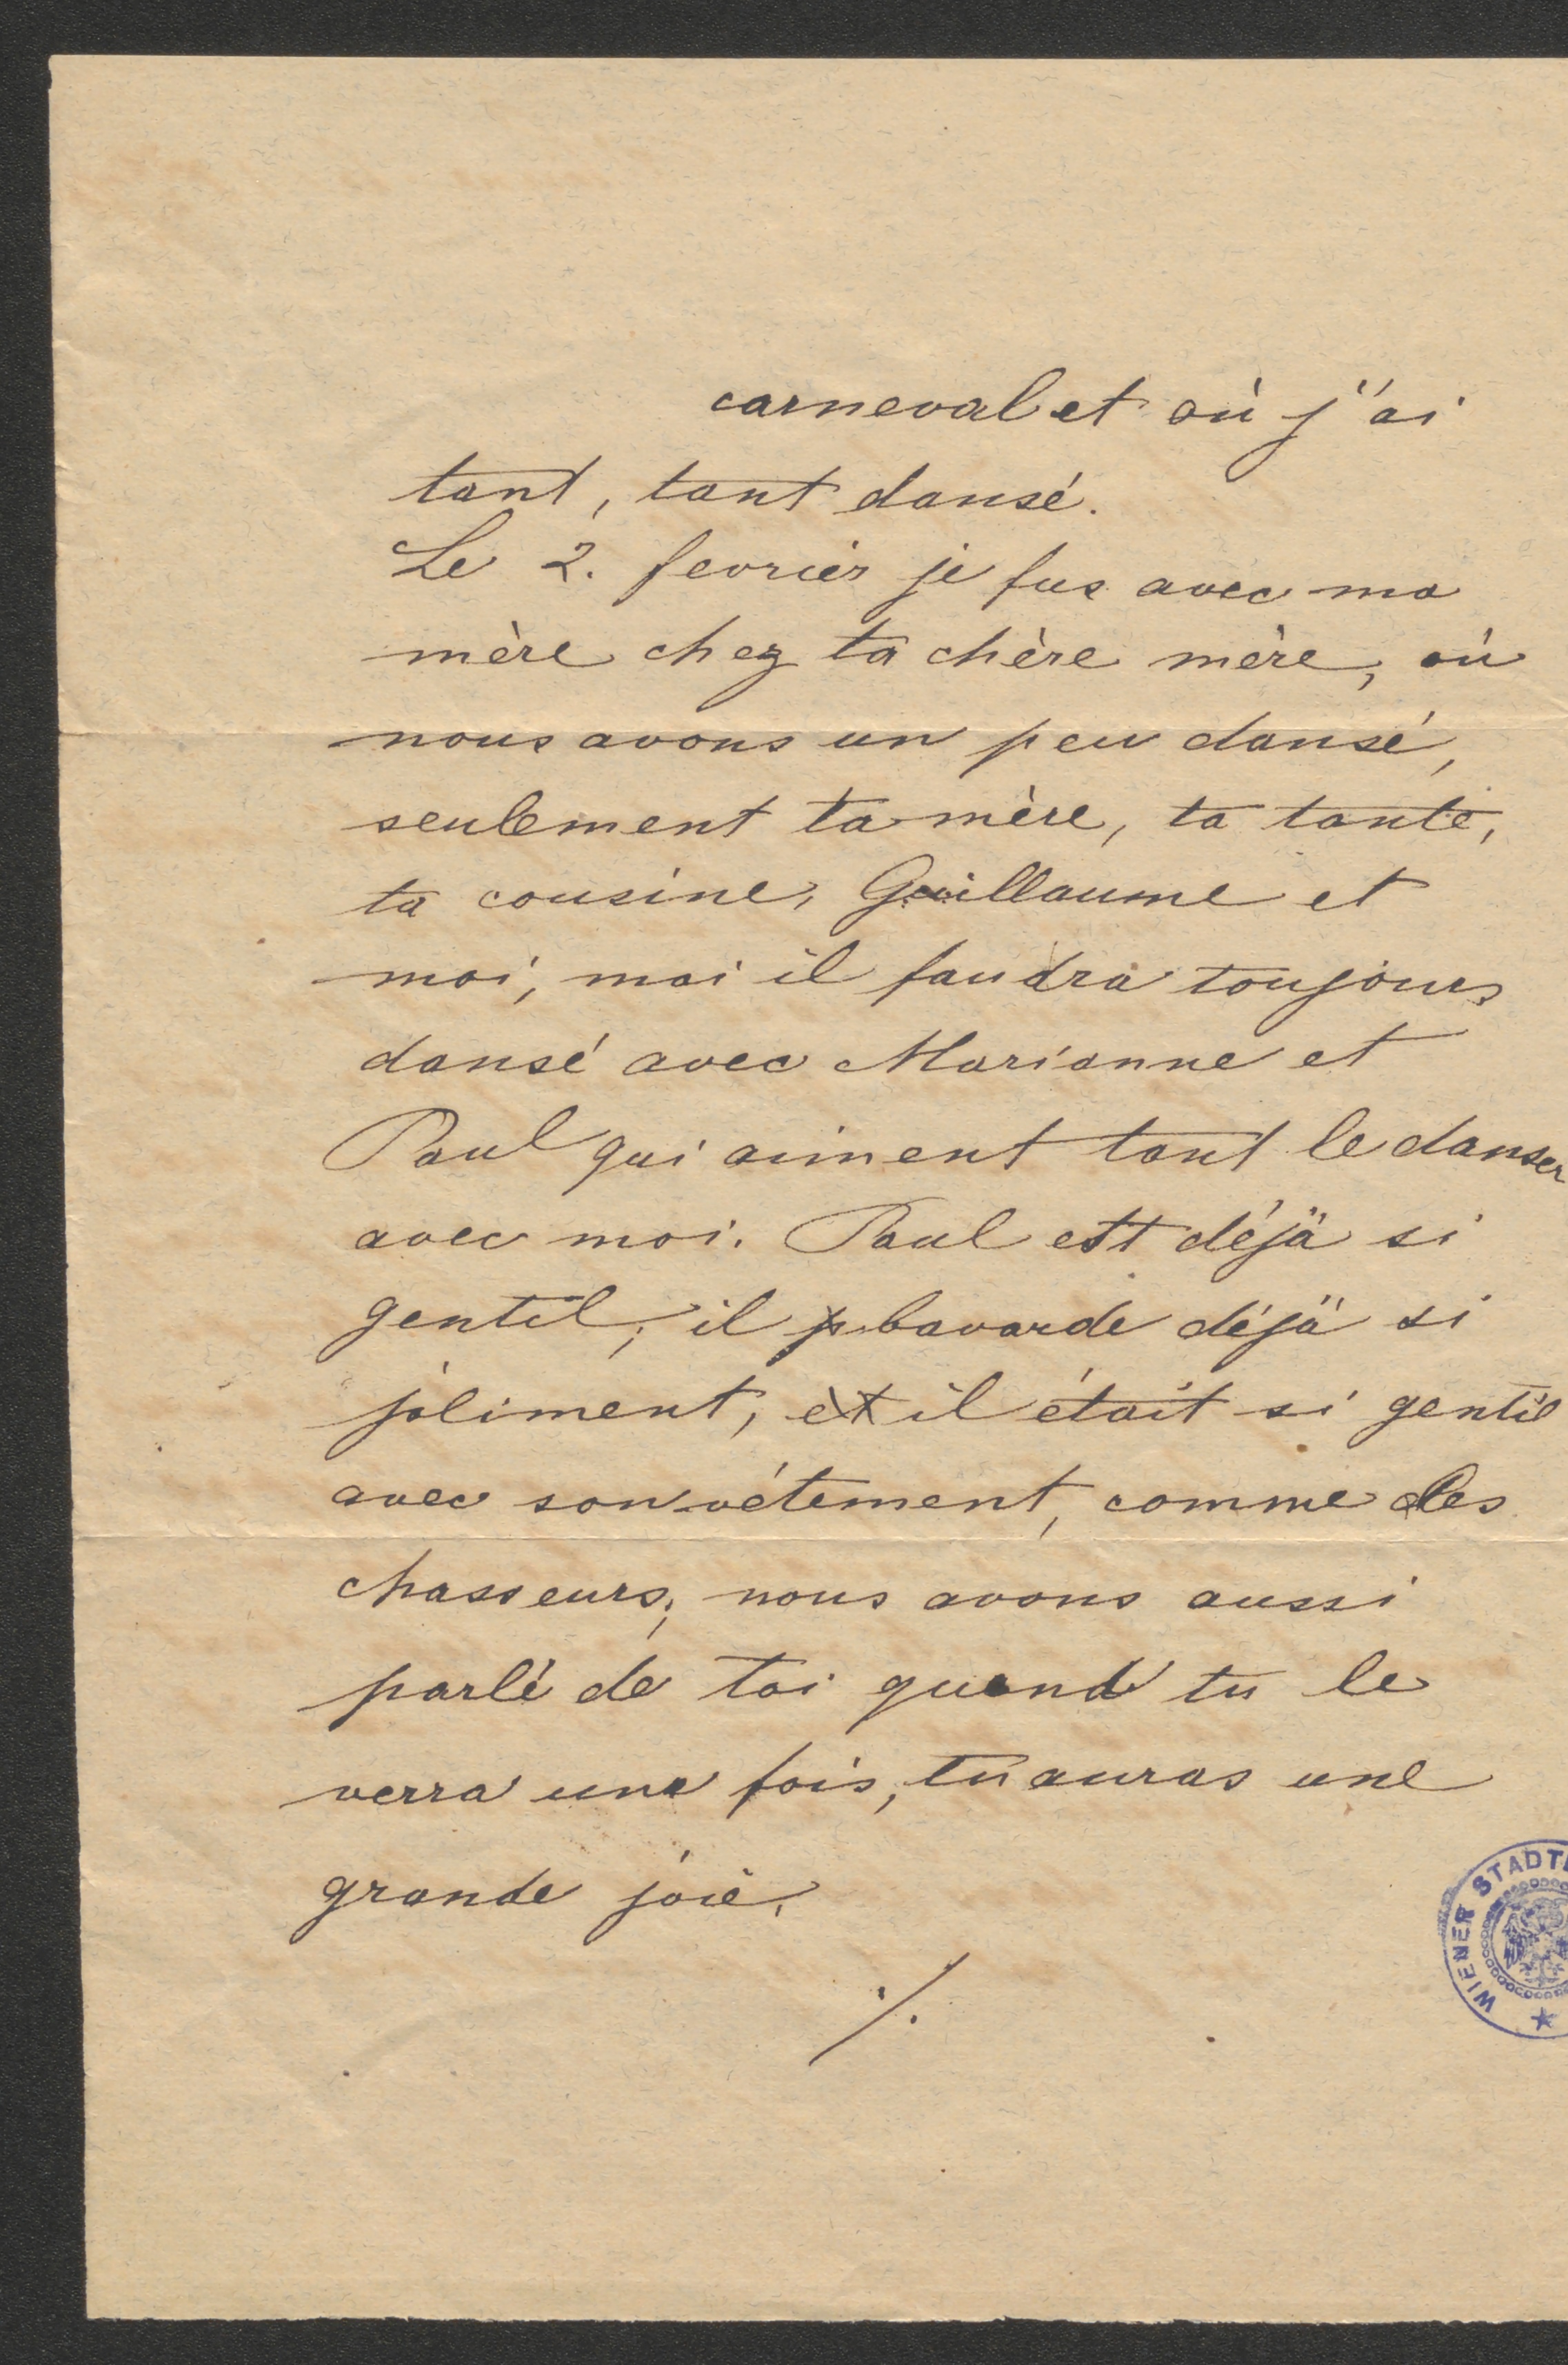 carneval et où j'ai
tant, tant dansé.
Le 2. fevrier je fus avec ma
mère chez ta chère mère, où
nous avons un peu dansé,
seulement ta mère, ta tante,
ta cousine, Guillaume et
moi, moi il faudra toujours
dansé avec Marianne et
Paul qui aiment tant le danser
avec moi. Paul est déjà si
gentil, il bavarde déjà si
joliment, et il était si gentil
avec son vétement, comme les
chasseurs, nous avons aussi
parlé de toi quand tu le
verra une fois, tu auras une
grande joie.
./.
WIENER STADT